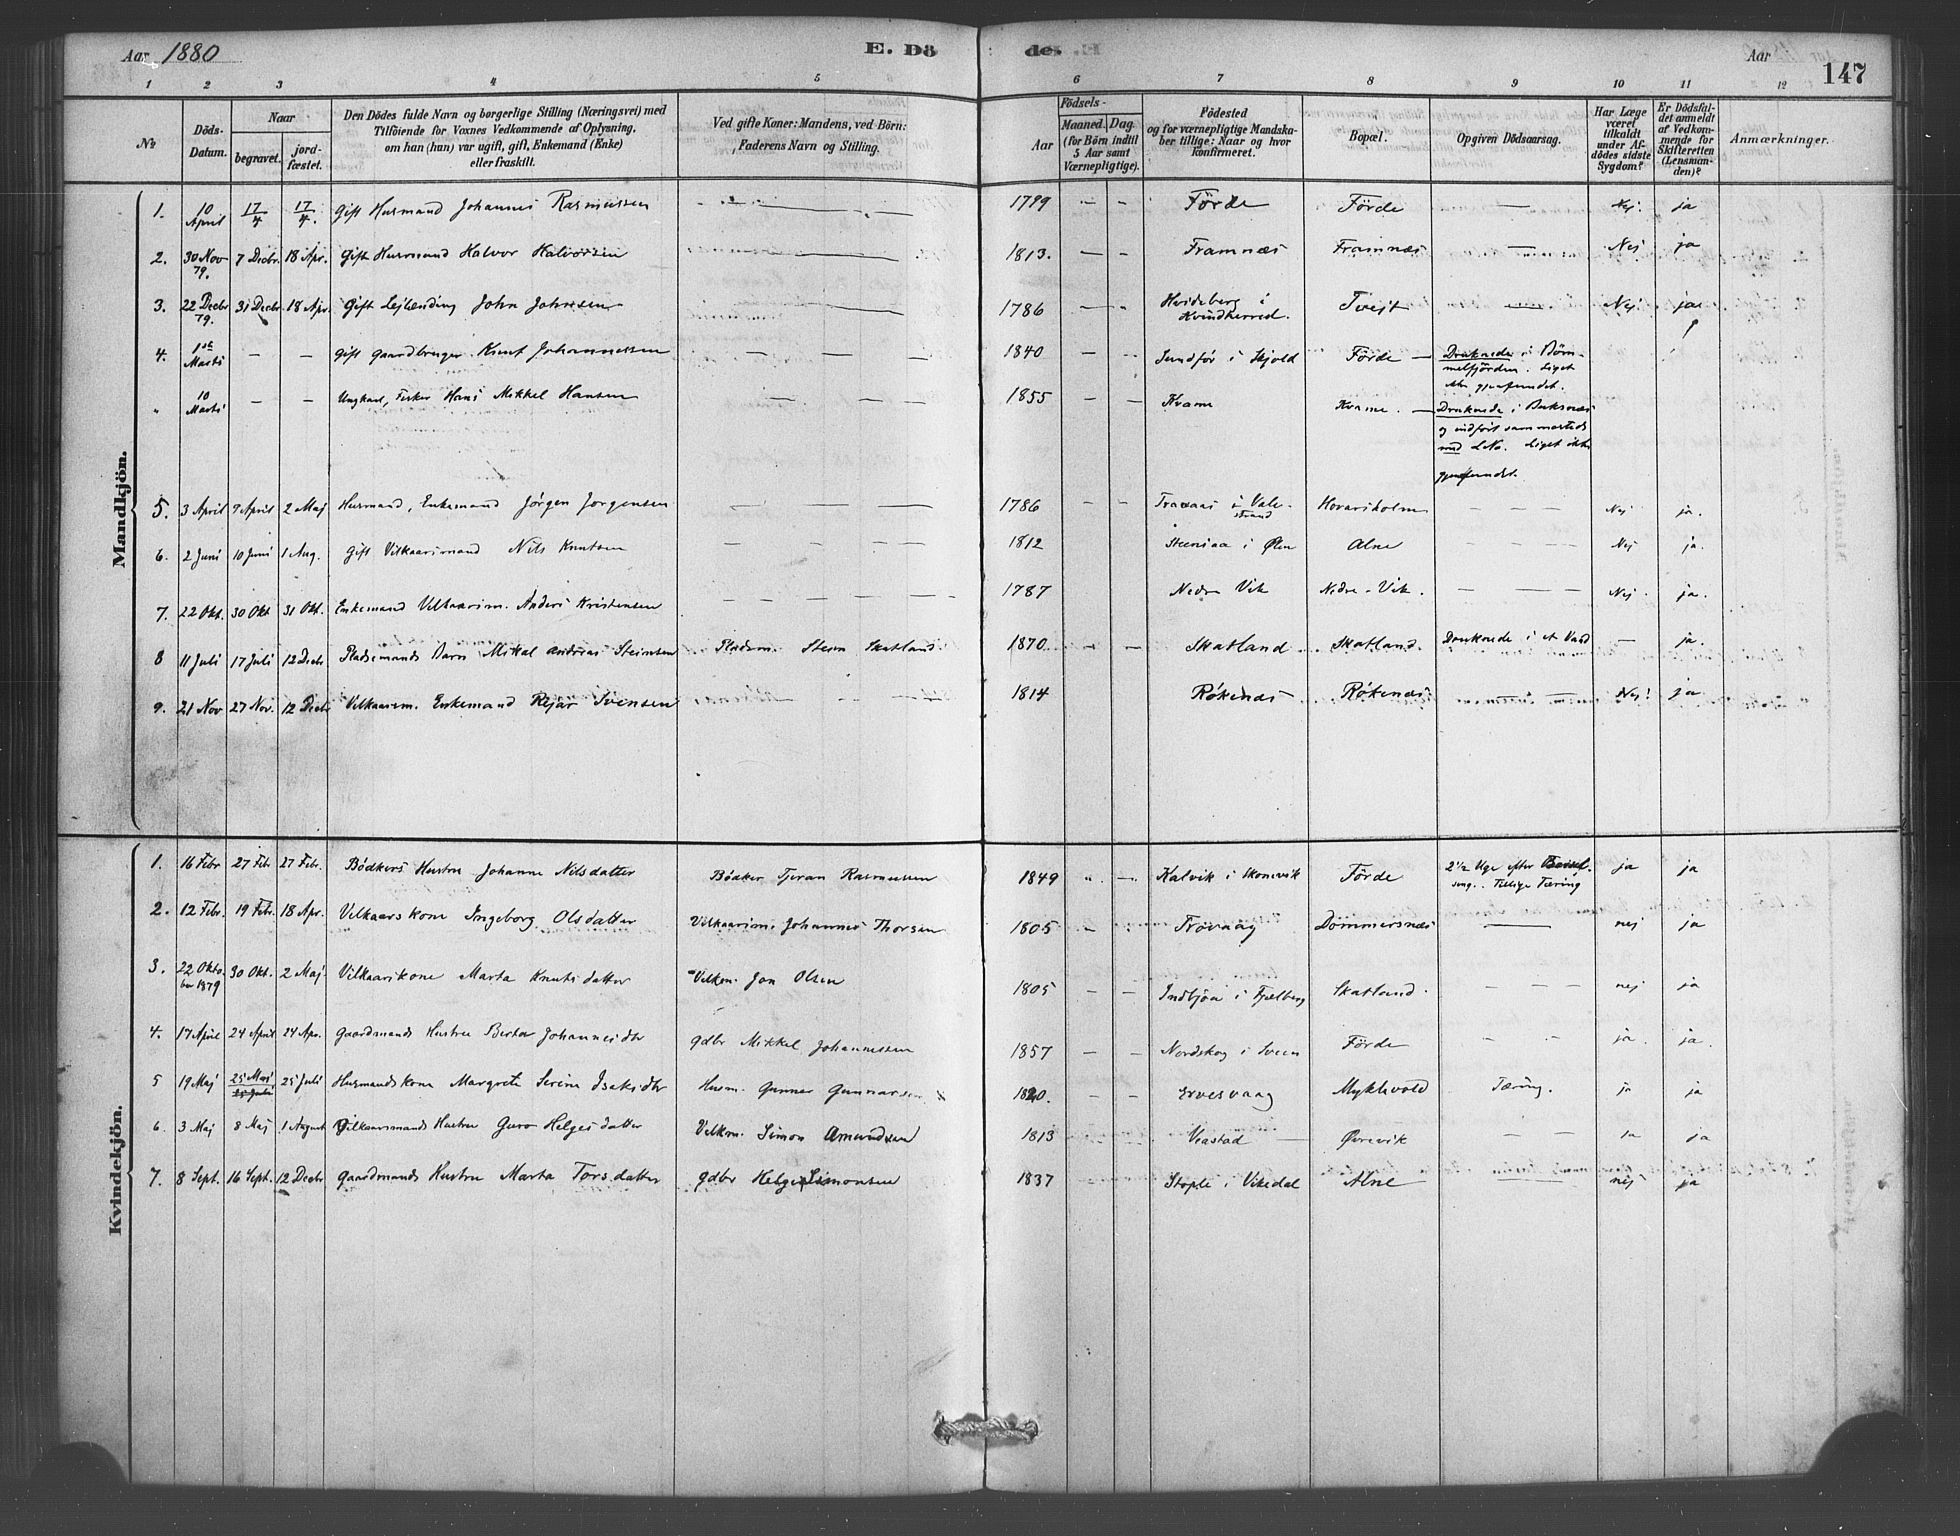 Aar 1880 E. Dö de. Aar 147
1 2 3 4 5 6 7 8 9 10 11 12
№ Döds-Datum. Naar begravet. jord-fæstet. Den Dödes fulde Navn og borgerlige Stilling (Næringsvei) med Tilföiende for Voxnes Vedkommende af Oplysning, om han (hun) var ugift, gift, Enkemand (Enke) eller fraskilt. Ved gifte Koner: Mandens, ved Börn: Faderens Navn og Stilling. Födsels- Aar Maaned. Dag. (for Börn indtil 5 Aar samt Værnepligtige). Födested og for værnepligtige Mandska-ber tillige: Naar og hvor konfirmeret. Bopæl. Opgiven Dödsaarsag. Har Læge været tilkaldt under Af-dödes sidste Sygdom? Er Dödsfal-det anmeldt af Vedkom-mende for Skifteretten (Lensman-den)? Anmærkninger.
Mandkjön.
1. 10 April 17/4 17/4. Gift Husmand Johannes Rasmussen — 1799 — — Förde Förde — Nej. ja
2. 30 Nov 79. 7 Decbr. 18 Apr. Gift Husmand Halvor Halvorsen — 1813. — — Framnæs Framnæs — Nej ja
3. 22 Decbr 79. 31 Decbr 18 Apr. Gift Lejlænding John Johnsen — 1786 — — Hvideberg i Kvindherred. Tvejt — Nej ja
4. 1st Marts — — Gift Gaardbruger Knut Johannessen — — — 1840 — — Sundfør i Skjold Förde — Druknede i Bøm-melfjorden. Liget ikke gjenfundet.
" 10 Marts — — Ungkarl, Fisker Hans Mikkel Hansen — — — 1855 — — Kvame Kvame. — Druknede i Buksnæs og indført sammesteds med L.No. Liget ikke gjenfundet.
5. 3 April 9 April 2 Maj Husmand, Enkemand Jørgen Jørgensen — — — 1786 — — Traaas i Vale-strand Hovarsholm — — — Nej ja.
6. 2 Juni 10 Juni 1 Aug. Gift Vilkaarsmand Nils Knutsen — — — — 1812 — — Steensaa i Ølen Alne — — — Nej ja.
7. 22 Okt. 30 Okt 31 Okt. Enkemand Vilkaarsm. Anders Kristensen — — — — — 1787 — — Nedre Vik Nedre-Vik. — — — Nej. ja.
8 11 Juli 17 Juli 12 Decbr Pladsemands Barn Mikal Andreas Steinsen Pladsm. Stein Skatland 1870. — — Skatland. Skatland. Druknede i et Vand — ja.
9. 21 Nov 27 Nov. 12 Decbr Vilkaarsm. Enkemand Rejar Svensen — — — 1814 Røkenæs Røkenæs — — Nej! ja
Kvindekjön.
1. 16 Febr 27 Febr 27 Febr. Bødkers Hustru Johanne Nilsdatter Bødker Tjeran Rasmussen 1849 " — Kalvik i Skonevik Förde 2½ Uge efter Barsel-seng. Tillige Tæring ja ja
2. 12 Febr. 19 Febr. 18 Apr. Velkaarskone Ingeborg Olsdatter Vilkaarsm. Johannes Thorsen 1805 — — Trovaag Dommersnæs — nej ja
3. 22 Okto ber 1879 30 Okt. 2 Maj. Vilkaarskone Marta Knutsdatter Velkm. Jon Olsen 1805 — — Indbjoa i Fjelberg Skatland. — — — nej ja
4. 17 April 24 April 24 Apr. Gaardmands Hustru Berta Johannesdtr Gdbr Mikkel Johannessen 1857 — — Nordskog i Sveen Förde — — ja. ja.
5 19 Maj 25 Maj 25 Juli 25 Juli Husmandskone Margrete Serine Isaksdtr Husm. Gunnar Gunnarsen 1820. — — Ervesvaag Myklevold Tæring. ja ja
6. 3 Maj 8 Maj 1 August Vilkaarsmands Hustru Guro Helgesdatter Velkm. Simon Amundsen 1813 — — Veastad — Øvrevik — — ja ja
7. 8 Sept. 16 Sept. 12 Decbr Gaardmands Hustru Marta Torsdatter Gdbr Helge Simonsen 1837 — — Stople i Vikedal Alne — nej ja